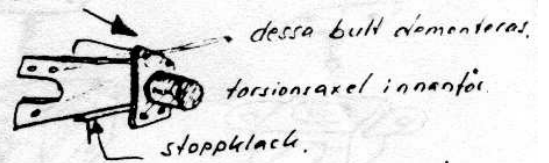 dessa bult demonteras.
torsionsaxel innanför.
stoppklack.